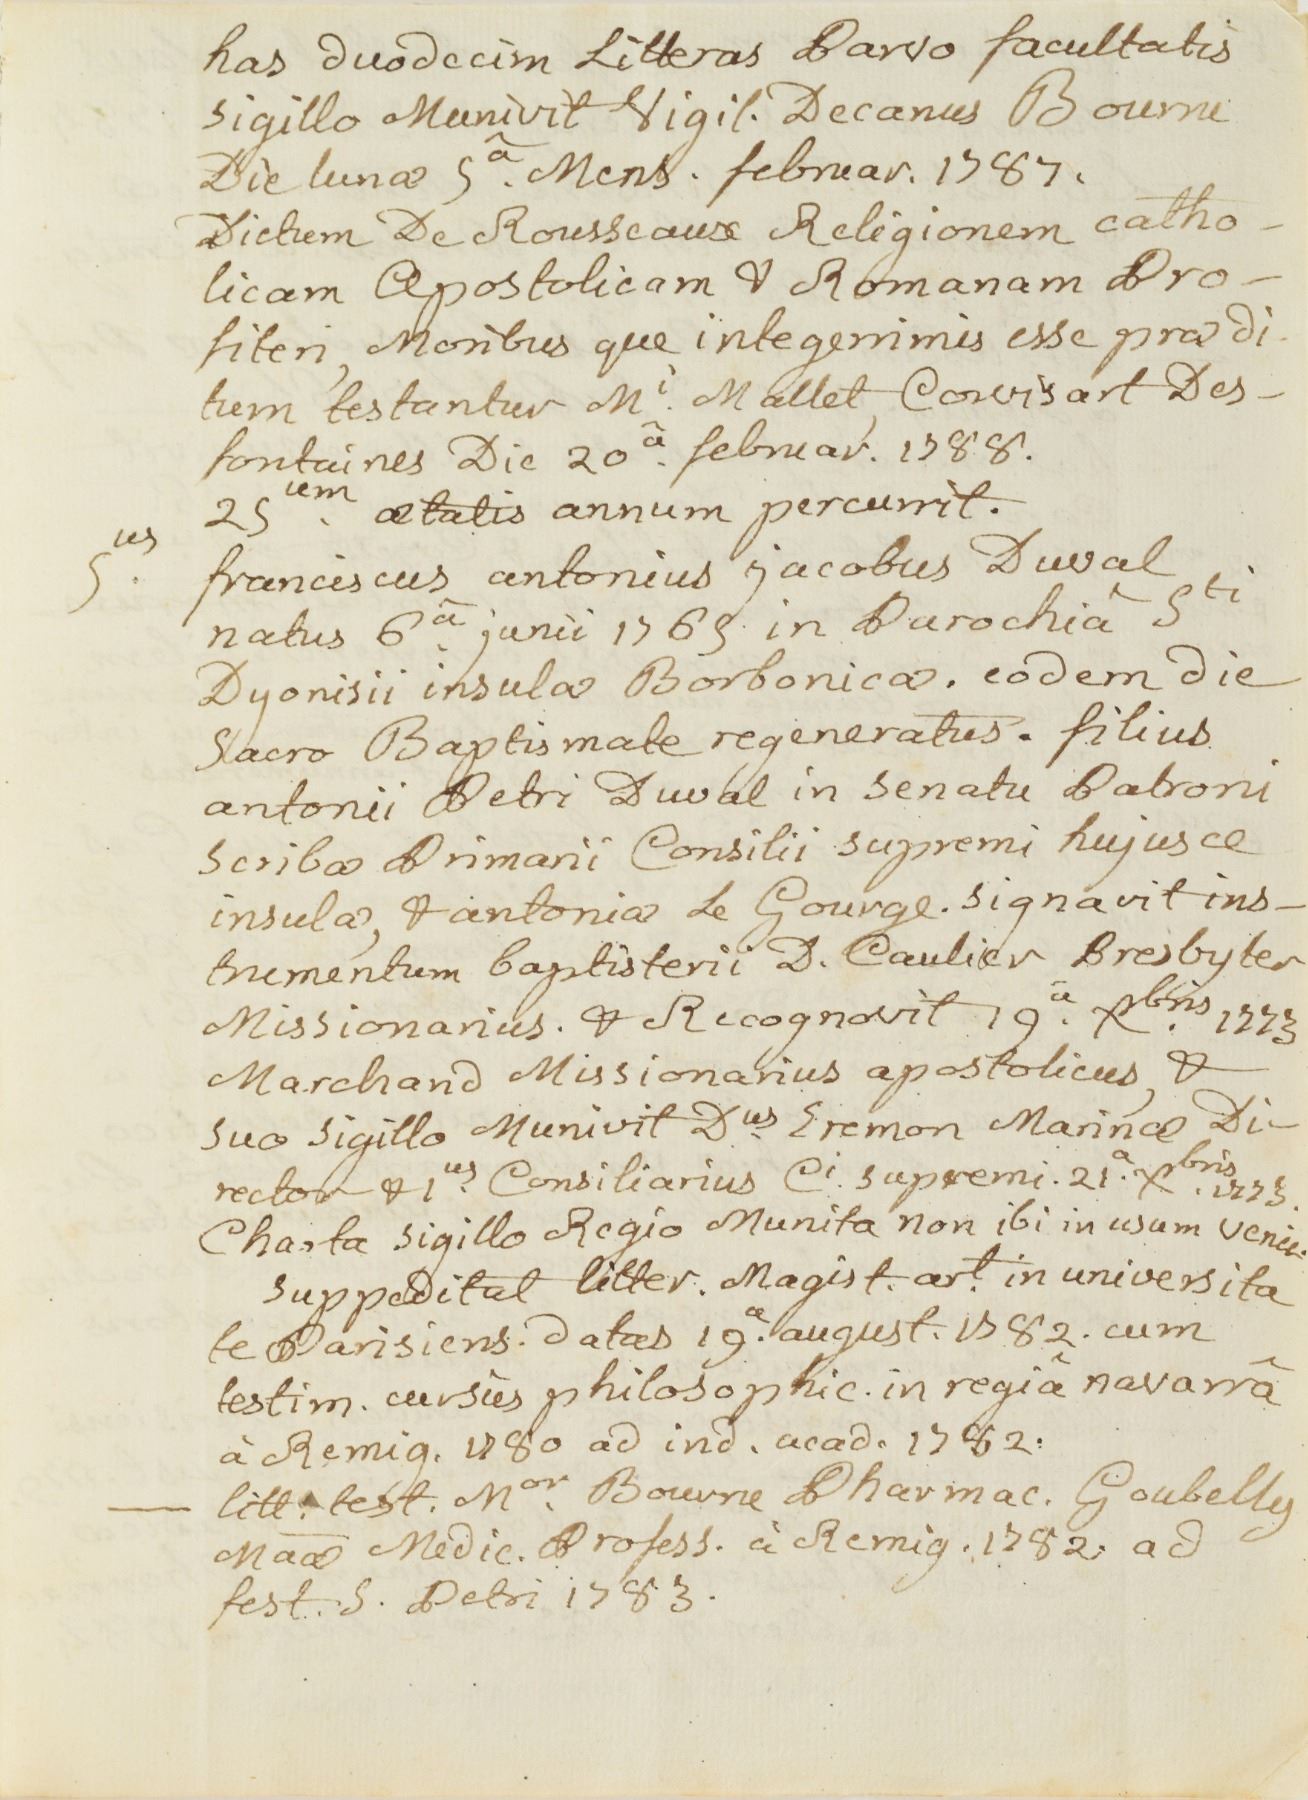 has duodecim Litteras Parvo facultatis
sigillo Munivit Vigil. Decanus Bourru
Die lunæ 5.â Mens. februar. 1787.
Dictum De Rousseaux Religionem catho-
licam Apostolicam & Romanam Pro-
fiteri, Moribus que integerrimis esse prædi-
tum testantur M.i Mallet, Corvisart Des-
fontaines Die 20.â februar. 1788.
25.um ætatis annum percurrit.
5.us franciscus antonius jacobus Duval
natus 6.â junii 1765 in Parochiâ S.ti
Dyonisii insulæ Borbonicæ. eodem die
Sacro Baptismate regeneratus. filius
antonii Petri Duval in senatu Patroni
scribæ Primarii Consilii supremi hujusce
insulæ, & antoniæ Le Gourge. signavit ins-
trumentum baptisterii D. Caulier Presbyter
Missionarius. & Recognovit 19.â X.bris 1773
Marchand Missionarius apostolicus, &
suo sigillo Munivit D.us Eremon Marinæ Di-
rector & 1.us Consiliarius C.i supremi. 21.a X.bris 1773.
Charta sigillo Regio Munita non ibi in usum venit.
suppeditat litter. Magist. art. in universita
te Parisiens. datas 19.a august. 1782. cum
testim. cursûs philosophic. in regiâ navarrâ
à Remig. 1780 ad ind. acad. 1782.
litt. test. M.or Bourru Pharmac. Goubelly
Maæ Medic. Profess. à Remig. 1782. ad
fest. S. Petri 1783.